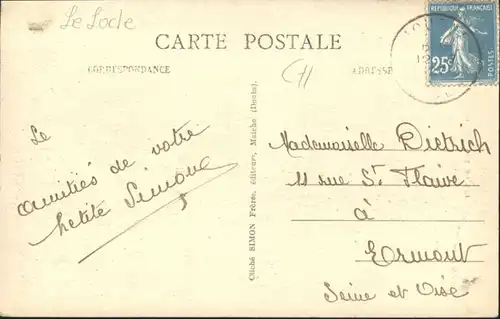 Le Locle
CARTE POSTALE
CORRESPONDANCE
CH
ADRESSE
REPUBLIQUE FRANÇAISE
25c
POSTES
Le
amitiés de votre
petite Simone
Cliché SIMON Frères, éditeurs, Maîche (Doubs).
Mademoiselle Dietrich
11 rue St Flaive
à
Ermont
Seine et Oise